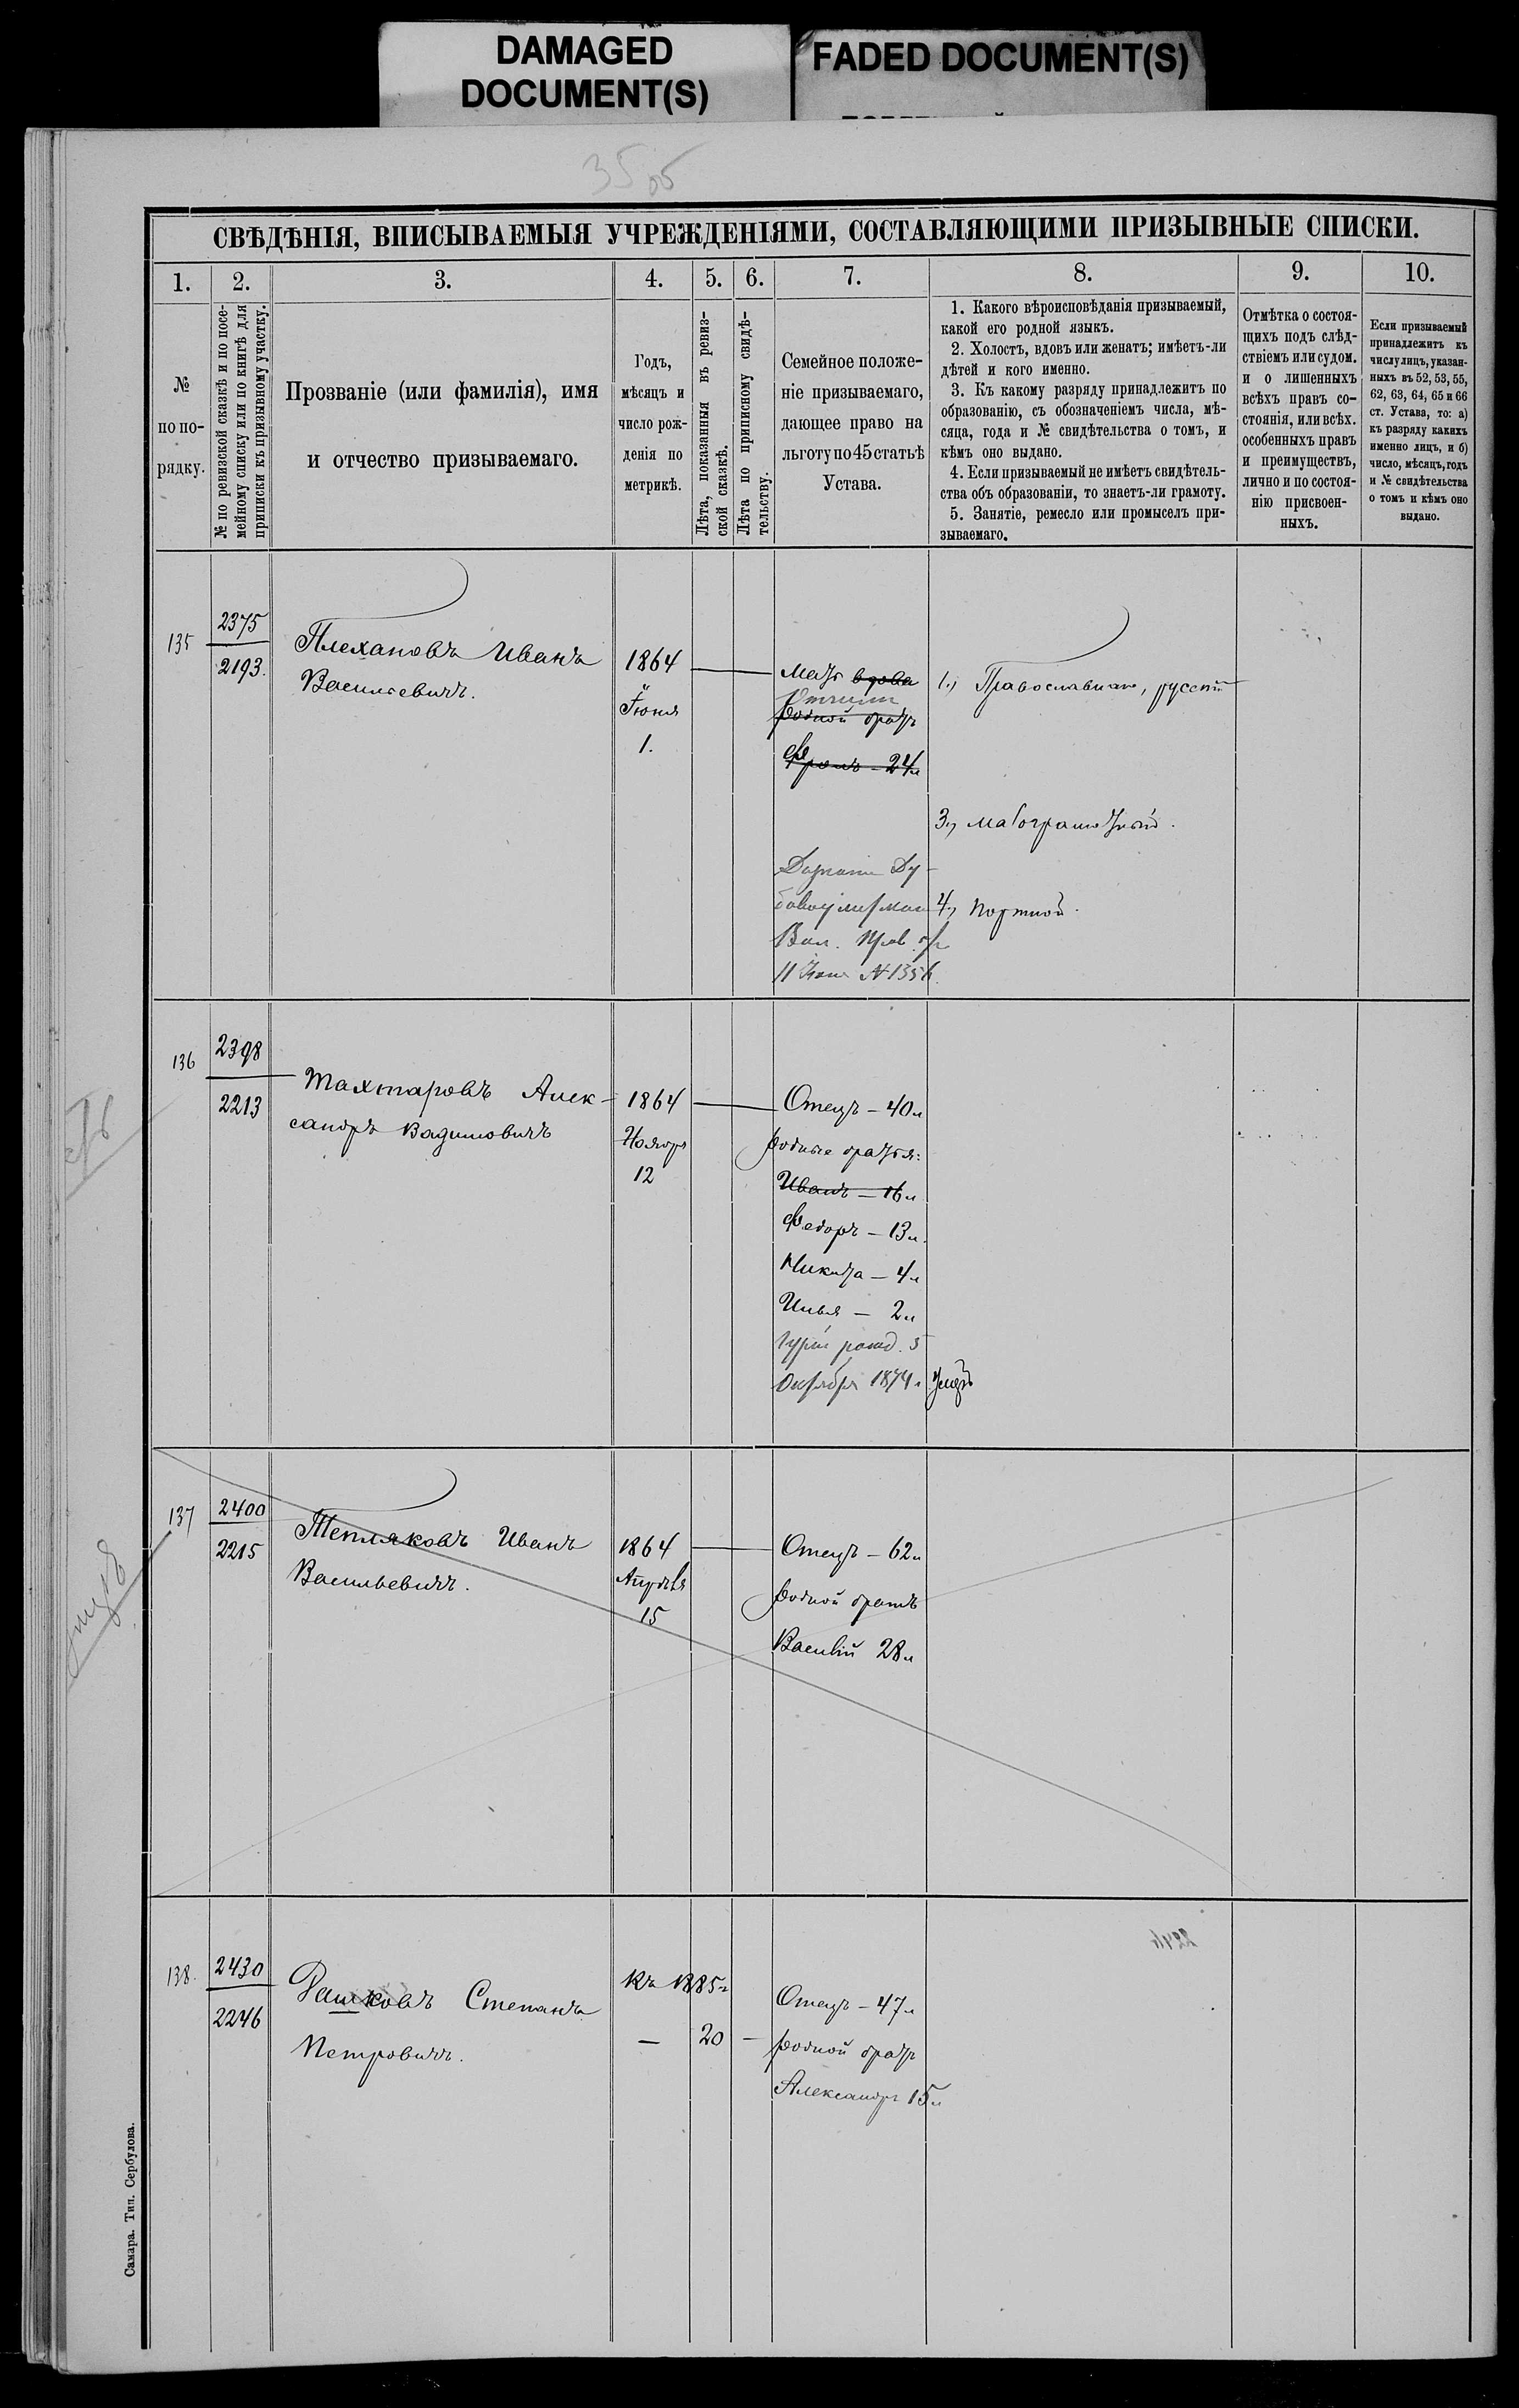 DAMAGED
DOCUMENT(S)
FADED DOCUMENT(S)
СВѢДѢНІЯ, ВПИСЫВАЕМЫЯ УЧРЕЖДЕНІЯМИ, СОСТАВЛЯЮЩИМИ ПРИЗЫВНЫЕ СПИСКИ.
1.
2.
3.
4.
5.
6.
7.
8.
9.
10.
№
по по-
рядку.
№ по ревизской сказкѣ и по посе-
мейному списку или по книгѣ для
приписки къ призывному участку.
Прозваніе (или фамилія), имя
и отчество призываемаго.
Годъ,
мѣсяцъ и
число рож-
денія по
метрикѣ.
Лѣта, показанныя въ ревиз-
ской сказкѣ.
Лѣта по приписному свидѣ-
тельству.
Семейное положе-
ніе призываемаго,
дающее право на
льготу по 45 статьѣ
Устава.
1. Какого вѣроисповѣданія призываемый,
какой его родной языкъ.
2. Холостъ, вдовъ или женатъ; имѣетъ-ли
дѣтей и кого именно.
3. Къ какому разряду принадлежитъ по
образованію, съ обозначеніемъ числа, мѣ-
сяца, года и № свидѣтельства о томъ, и
кѣмъ оно выдано.
4. Если призываемый не имѣетъ свидѣтель-
ства объ образованіи, то знаетъ-ли грамоту.
5. Занятіе, ремесло или промыселъ при-
зываемаго.
Отмѣтка о состоя-
щихъ подъ слѣд-
ствіемъ или судом.
и о лишенныхъ
всѣхъ правъ со-
стоянія, или всѣх.
особенныхъ правъ
и преимуществъ,
лично и по состоя-
нію присвоен-
ныхъ.
Если призываемый
принадлежитъ къ
числу лицъ, указан-
ныхъ въ 52, 53, 55,
62, 63, 64, 65 и 66
ст. Устава, то: а)
къ разряду какихъ
именно лицъ, и б)
число, мѣсяцъ, годъ
и № свидѣтельства
о томъ и кѣмъ оно
выдано.
135
2375
2193.
Плехановъ Иванъ
Васильевичъ.
1864
Іюня
1.
Мать вдова
родной братъ
Фролъ - 24 л
11 Іюня № 1356
1., Православнаго, русскій
3., малограмотный.
4., портной.
136
2398
2213
Тахтаровъ Алек-
сандръ Вадимовичъ
1864
Ноября
12
Отецъ - 40 л
родные братья:
Иванъ - 16 л
Федоръ - 13 л.
Никита - 4 л
Илья - 2 л
Гурій рожд. 5
Октября 1874 г
137
2400
2215
Тепляковъ Иванъ
Васильевичъ.
1864
Апрѣля
15
Отецъ - 62 л
родной братъ
Василій 28 л
138.
2430
2246
Рашковъ Степанъ
Петровичъ.
Къ 1885 г
— 20 —
Отецъ - 47 л
родной братъ
Александръ 15 л
Самара. Тип. Сербулова.